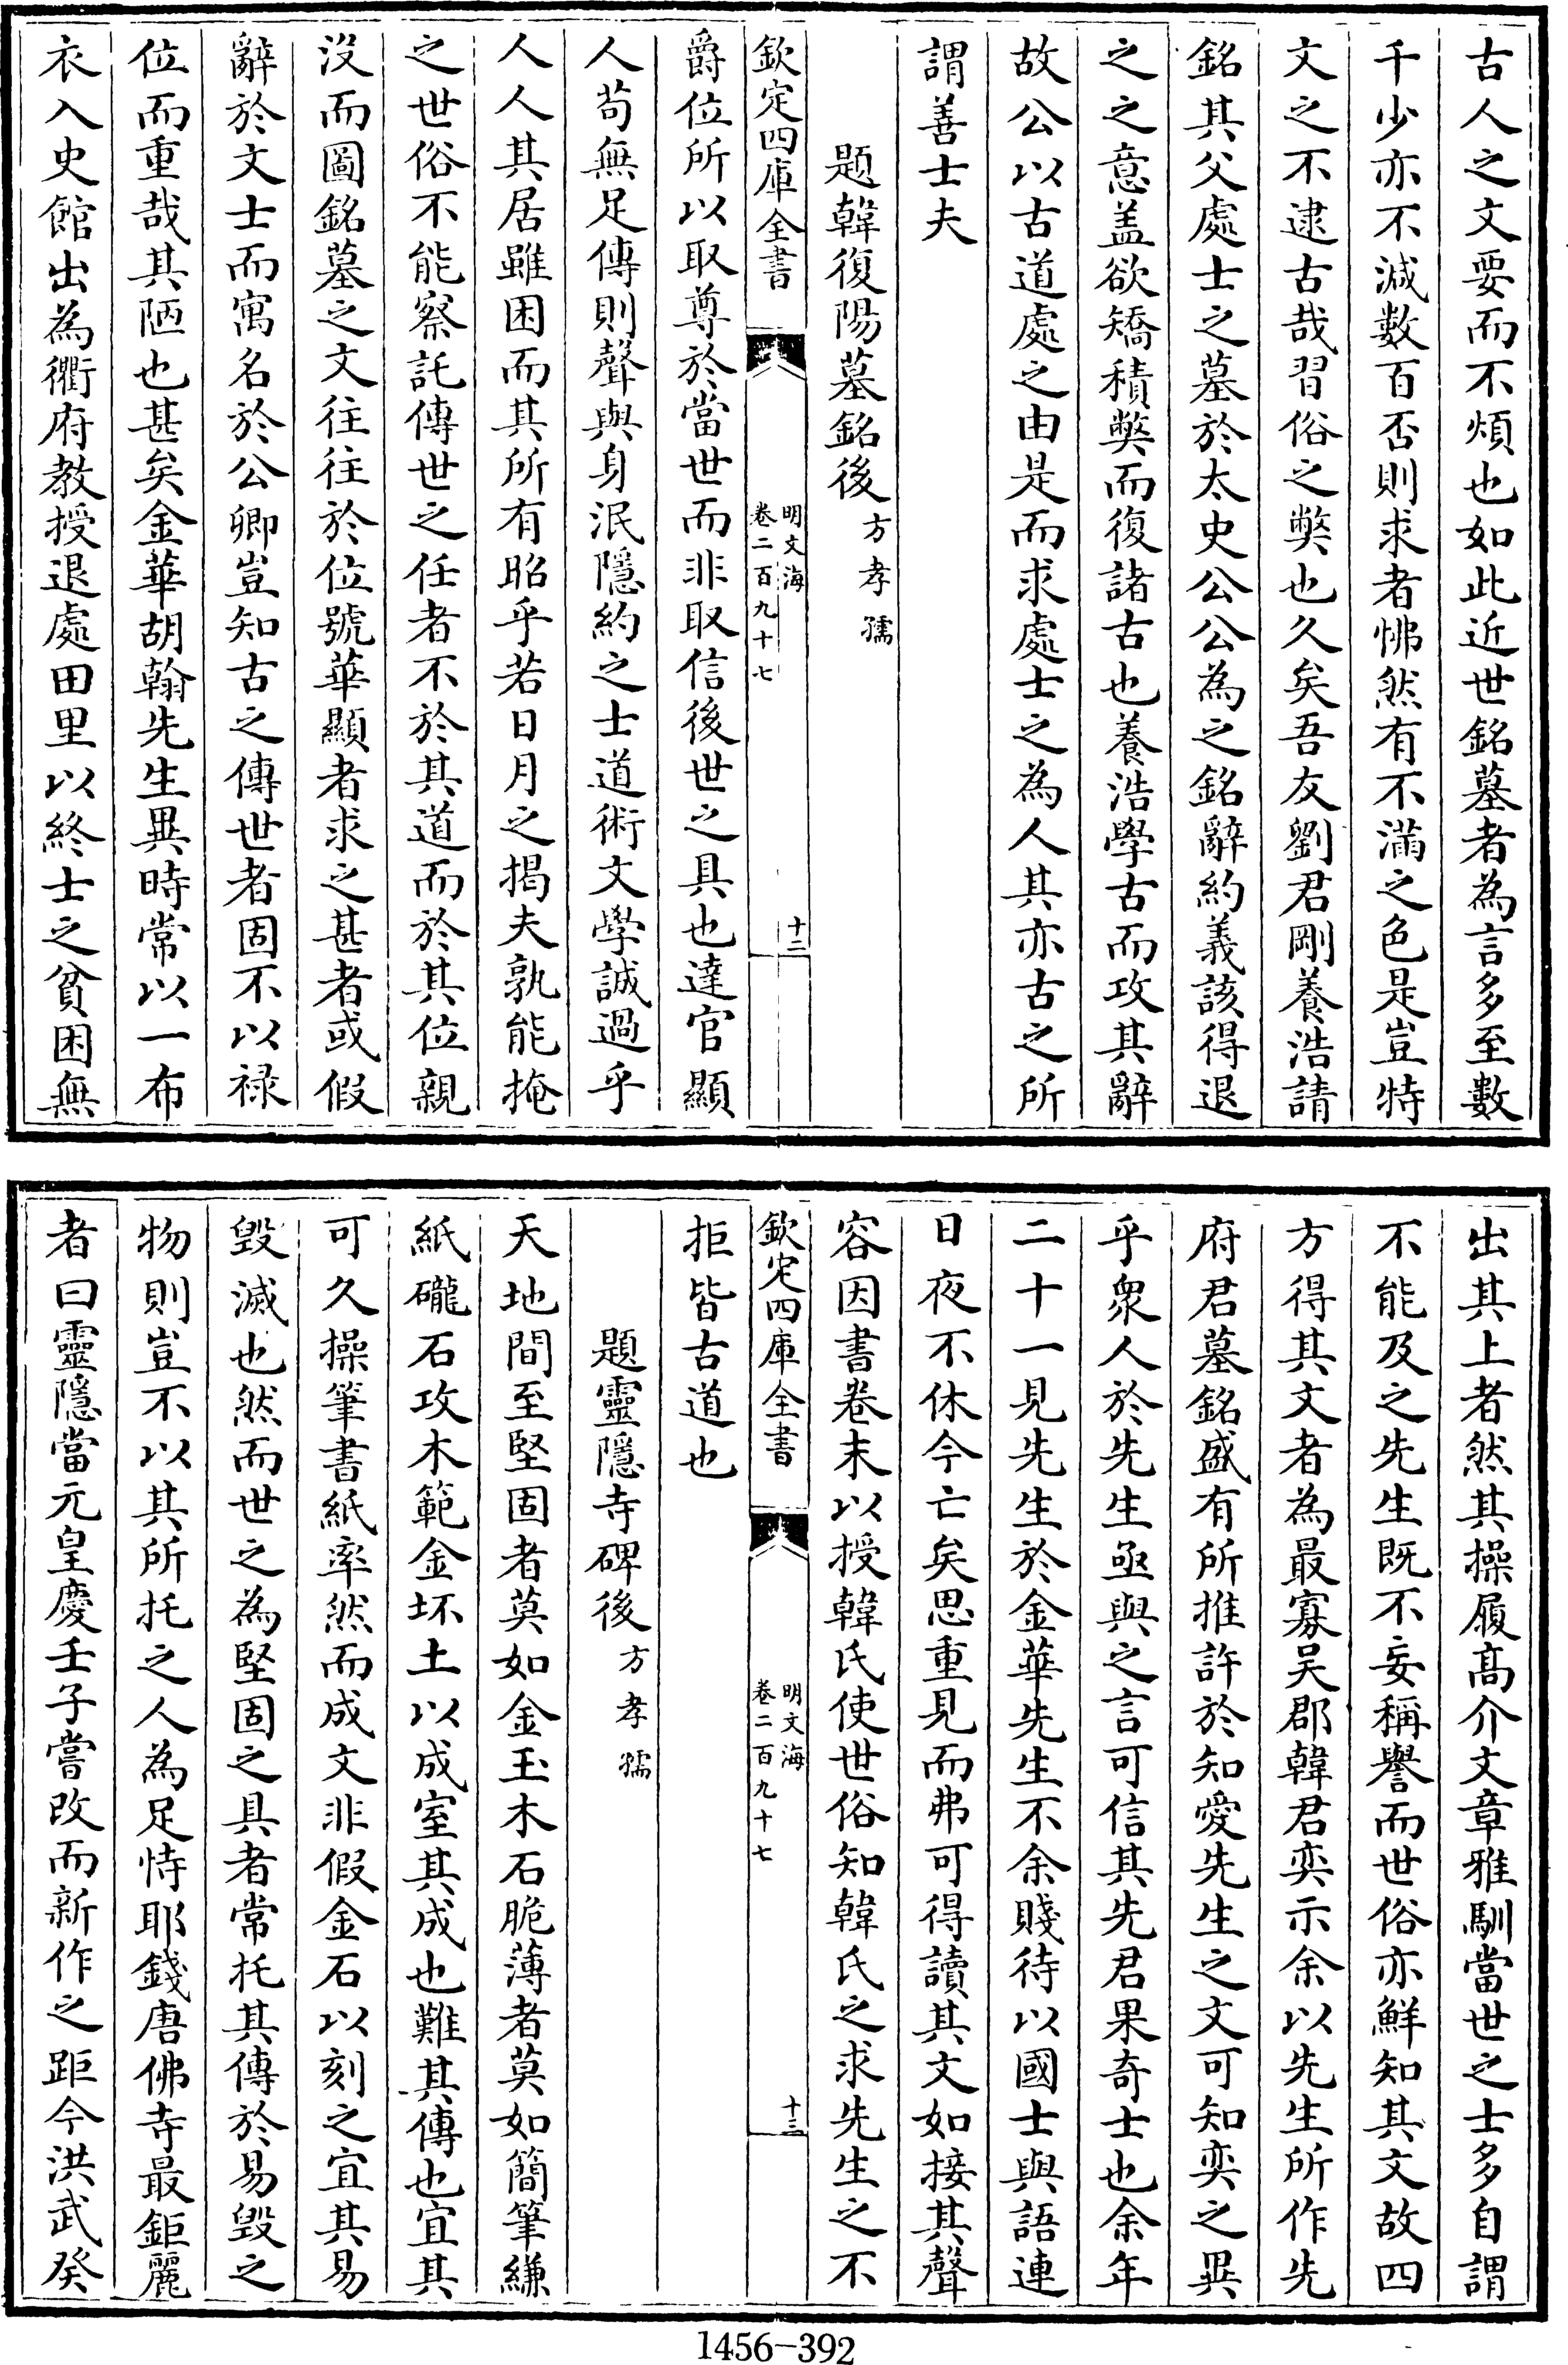 古人之文要而不煩也如此近世銘墓者為言多至數
千少亦不減數百否則求者怫然有不滿之色是豈特
文之不逮古哉習俗之弊也久矣吾友劉君剛養浩請
銘其父處士之墓於太史公公為之銘辭約義該得退
之之意盖欲矯積弊而復諸古也養浩學古而攻其辭
故公以古道處之由是而求處士之為人其亦古之所
謂善士夫
題韓復陽墓銘後 方孝孺
欽定四庫全書
明文海
卷二百九十七
十二
爵位所以取尊於當世而非取信後世之具也達官顯
人苟無足傳則聲與身泯隱約之士道術文學誠過乎
人人其居雖困而其所有昭乎若日月之揭夫孰能掩
之世俗不能察託傳世之任者不於其道而於其位親
沒而圖銘墓之文往往於位號華顯者求之甚者或假
辭於文士而寓名於公卿豈知古之傳世者固不以祿
位而重哉其陋也甚矣金華胡翰先生異時常以一布
衣入史館出為衢府教授退處田里以終士之貧困無
出其上者然其操履髙介文章雅馴當世之士多自謂
不能及之先生既不妄稱譽而世俗亦鮮知其文故四
方得其文者為最寡吴郡韓君奕示余以先生所作先
府君墓銘盛有所推許於知愛先生之文可知奕之異
乎衆人於先生亟與之言可信其先君果奇士也余年
二十一見先生於金華先生不余賤待以國士與語連
日夜不休今亡矣思重見而弗可得讀其文如接其聲
容因書卷末以授韓氏使世俗知韓氏之求先生之不
欽定四庫全書
明文海
卷二百九十七
十三
拒皆古道也
題靈隱寺碑後 方孝孺
天地間至堅固者莫如金玉木石脆薄者莫如簡筆縑
紙礲石攻木範金坏土以成室其成也難其傳也宜其
可久操筆書紙率然而成文非假金石以刻之宜其易
毀滅也然而世之為堅固之具者常托其傳於易毀之
物則豈不以其所托之人為足恃耶錢唐佛寺最鉅麗
者曰靈隱當元皇慶壬子嘗改而新作之距今洪武癸
1456-392